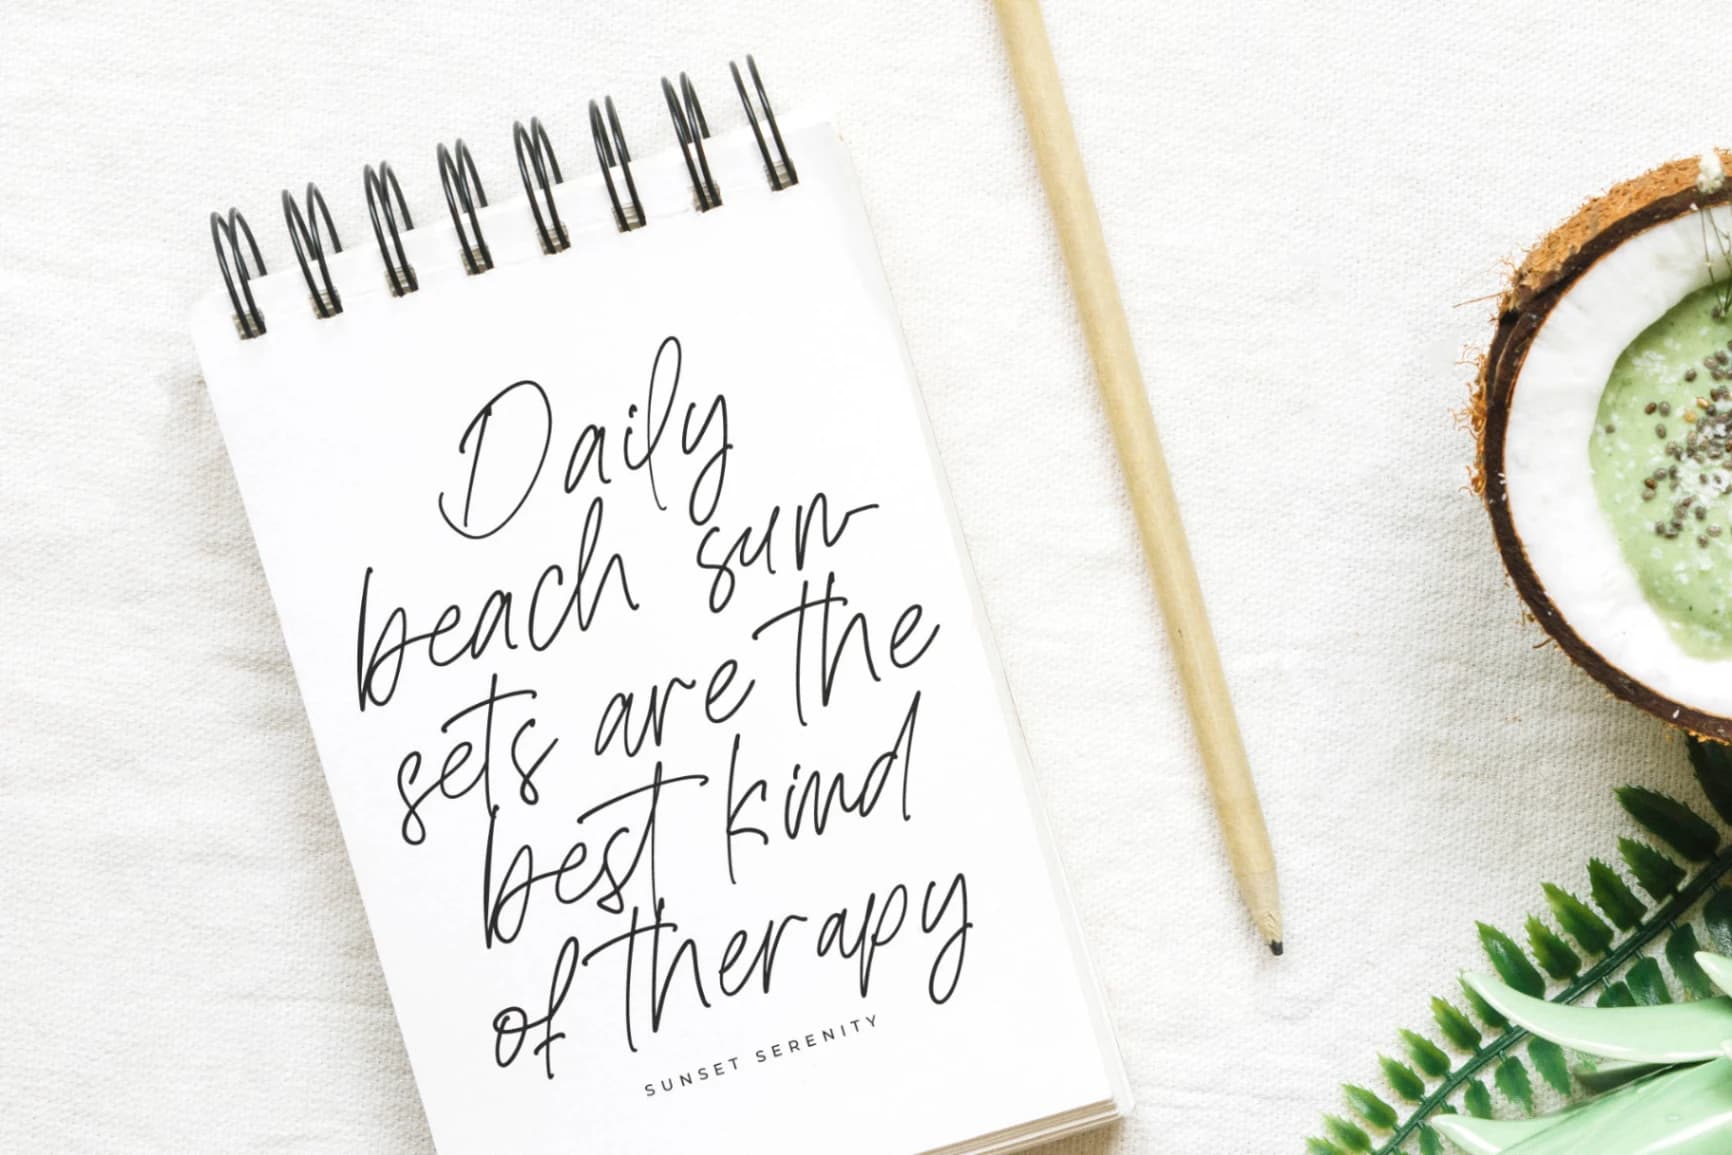 Daily
beach sun
sets are the
best kind
of therapy
SUNSET SERENITY